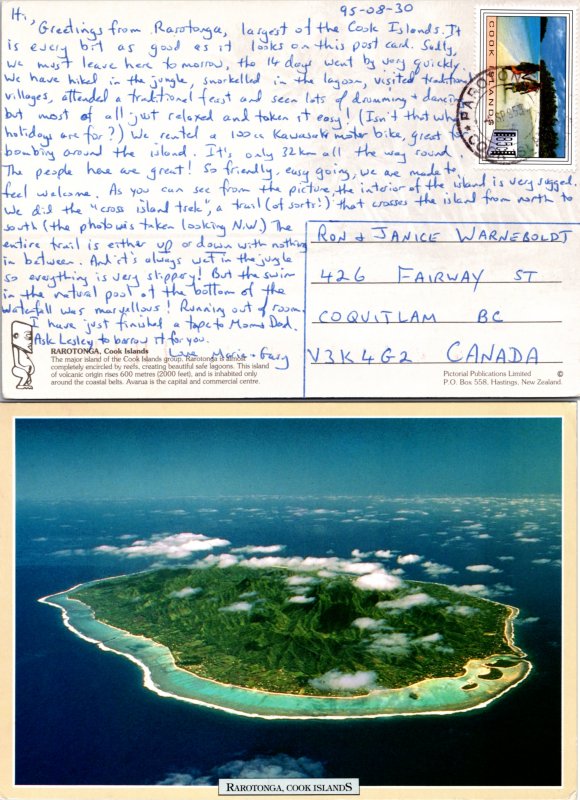 95-08-30
Hi,
Greetings from Rarotonga, largest of the Cook Islands. It
is every bit as good as it looks on this post card. Sadly,
we must leave here tomorrow, the 14 days went by very quickly.
We have hiked in the jungle, snorkelled in the lagoon, visited traditional
villages, attended a traditional feast and seen lots of drumming + dancing
but most of all just relaxed and taken it easy! (Isn't that what
holidays are for?) We rented a 100cc Kawasaki motor bike, great for
bombing around the island. It's only 32km all the way round.
The people here are great! So friendly, easy going, we are made to
feel welcome. As you can see from the picture, the interior of the island is very rugged.
We did the "cross island trek", a trail (of sorts!) that crosses the island from north to
south (the photo was taken looking N.W.) The
entire trail is either up or down with nothing
in between. And it's always wet in the jungle
so everything is very slippery! But the swim
in the natural pool at the bottom of the
waterfall was marvellous! Running out of room.
I have just finished a tape to Mom & Dad.
Ask Lesley to borrow it for you.
Love Maria + Gary
COOK ISLANDS
RON & JANICE WARNEBOLDT
426 FAIRWAY ST
COQUITLAM BC
V3K 4G2 CANADA
RAROTONGA, Cook Islands
The major island of the Cook Islands group. Rarotonga is almost
completely encircled by reefs, creating beautiful safe lagoons. This island
of volcanic origin rises 600 metres (2000 feet), and is inhabited only
around the coastal belts. Avarua is the capital and commercial centre.
Pictorial Publications Limited ©
P.O. Box 558, Hastings, New Zealand.
RAROTONGA, COOK ISLANDS